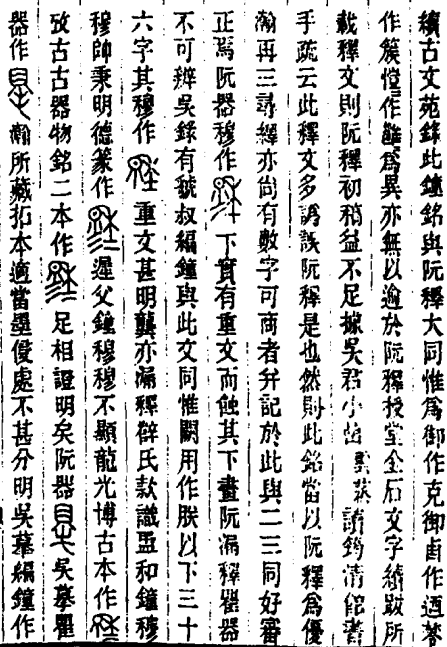 續古文苑錄此鐘銘與阮釋大同惟爲御作克御卣作逌䇲
作簇憻作離爲異亦無以逾於阮釋授堂金石文字續跋所
載釋文則阮釋初稿益不足據吳君小岳讀筠清館書
手疏云此釋文多譌誤阮釋是也然則此銘當以阮釋爲優
瀚再三尋繹亦尚有數字可商者幷記於此與二三同好審
正焉阮器穆作下實有重文而蝕其下畫阮漏釋瞿器
不可辨吳錄有虢叔編鐘與此文同惟闕用作朕以下三十
六字其穆作重文甚明龔亦漏釋薛氏款識盄和鐘穆
穆帥秉明德篆作遲父鐘穆穆不顯龍光博古本作
攷古古器物銘二本作足相證明矣阮器吳摹瞿
器作瀚所藏拓本適當墨僾處不甚分明吳摹編鐘作